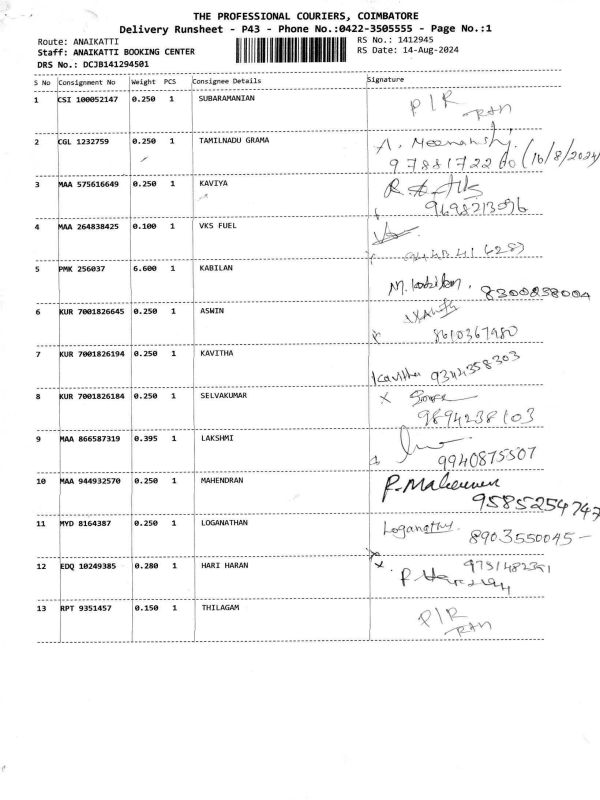 THE PROFESSIONAL COURIERS, COIMBATORE
Delivery Runsheet - P43 - Phone No.:0422-3505555 - Page No.:1
Route: ANAIKATTI RS No.: 1412945
Staff: ANAIKATTI BOOKING CENTER RS Date: 14-Aug-2024
DRS No.: DCJB141294501
S No Consignment No Weight PCS Consignee Details Signature
1 CSI 100052147 0.250 1 SUBARAMANIAN P/R
2 CGL 1232759 0.250 1 TAMILNADU GRAMA A. Meenakshi.
(16/8/2024)
3 MAA 575616649 0.250 1 KAVIYA
9698213096
4 MAA 264838425 0.100 1 VKS FUEL
5 PMK 256037 6.600 1 KABILAN M. Kabilan. 8300838004
6 KUR 7001826645 0.250 1 ASWIN
8610367980
7 KUR 7001826194 0.250 1 KAVITHA Kavitha 9344358303
8 KUR 7001826184 0.250 1 SELVAKUMAR X
9894238103
9 MAA 866587319 0.395 1 LAKSHMI
9940875507
10 MAA 944932570 0.250 1 MAHENDRAN P. Mahendran
9585254747
11 MYD 8164387 0.250 1 LOGANATHAN Loganathan. 8903550045-
12 EDQ 10249385 0.280 1 HARI HARAN 9751482391
13 RPT 9351457 0.150 1 THILAGAM P/R